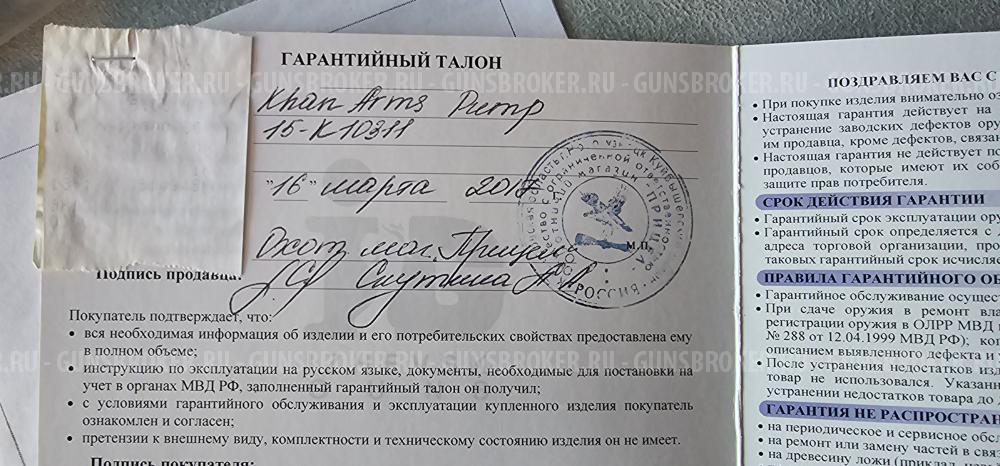 ГАРАНТИЙНЫЙ ТАЛОН
Khan Arms Pump
15-К10311
"16" марта
Охот. маг. Прицел
М.П.
Подпись продавца:
РОССИЯ
Покупатель подтверждает, что:
• вся необходимая информация об изделии и его потребительских свойствах предоставлена ему
в полном объеме;
• инструкцию по эксплуатации на русском языке, документы, необходимые для постановки на
учет в органах МВД РФ, заполненный гарантийный талон он получил;
• с условиями гарантийного обслуживания и эксплуатации купленного изделия покупатель
ознакомлен и согласен;
• претензии к внешнему виду, комплектности и техническому состоянию изделия он не имеет.
Подпись покупателя:
ПОЗДРАВЛЯЕМ ВАС С
• При покупке изделия внимательно
• Настоящая гарантия действует на
устранение заводских дефектов
им продавца, кроме дефектов,
• Настоящая гарантия не действует
продавцов, которые имеют их
защите прав потребителя.
СРОК ДЕЙСТВИЯ ГАРАНТИИ
• Гарантийный срок эксплуатации
• Гарантийный срок определяется с
адреса торговой организации,
таковых гарантийный срок
ПРАВИЛА ГАРАНТИЙНОГО
• Гарантийное обслуживание
• При сдаче оружия в ремонт
регистрации оружия в ОЛРР МВД
№ 288 от 12.04.1999 МВД РФ);
описанием выявленного дефекта и
• После устранения недостатков
товар не использовался.
устранении недостатков товара до
ГАРАНТИЯ НЕ
• на периодическое и сервисное
• на ремонт или замену частей в
• на древесину ложи (приклад,
GUNSBROKER.RU - GUNSBROKER.RU - GUNSBROKER.RU - GUNSBROKER.RU